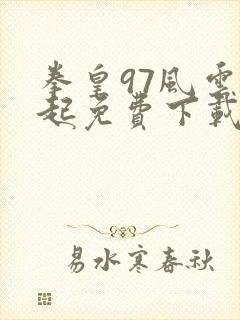 拳皇97風雲
起免費下載
易水寒春秋